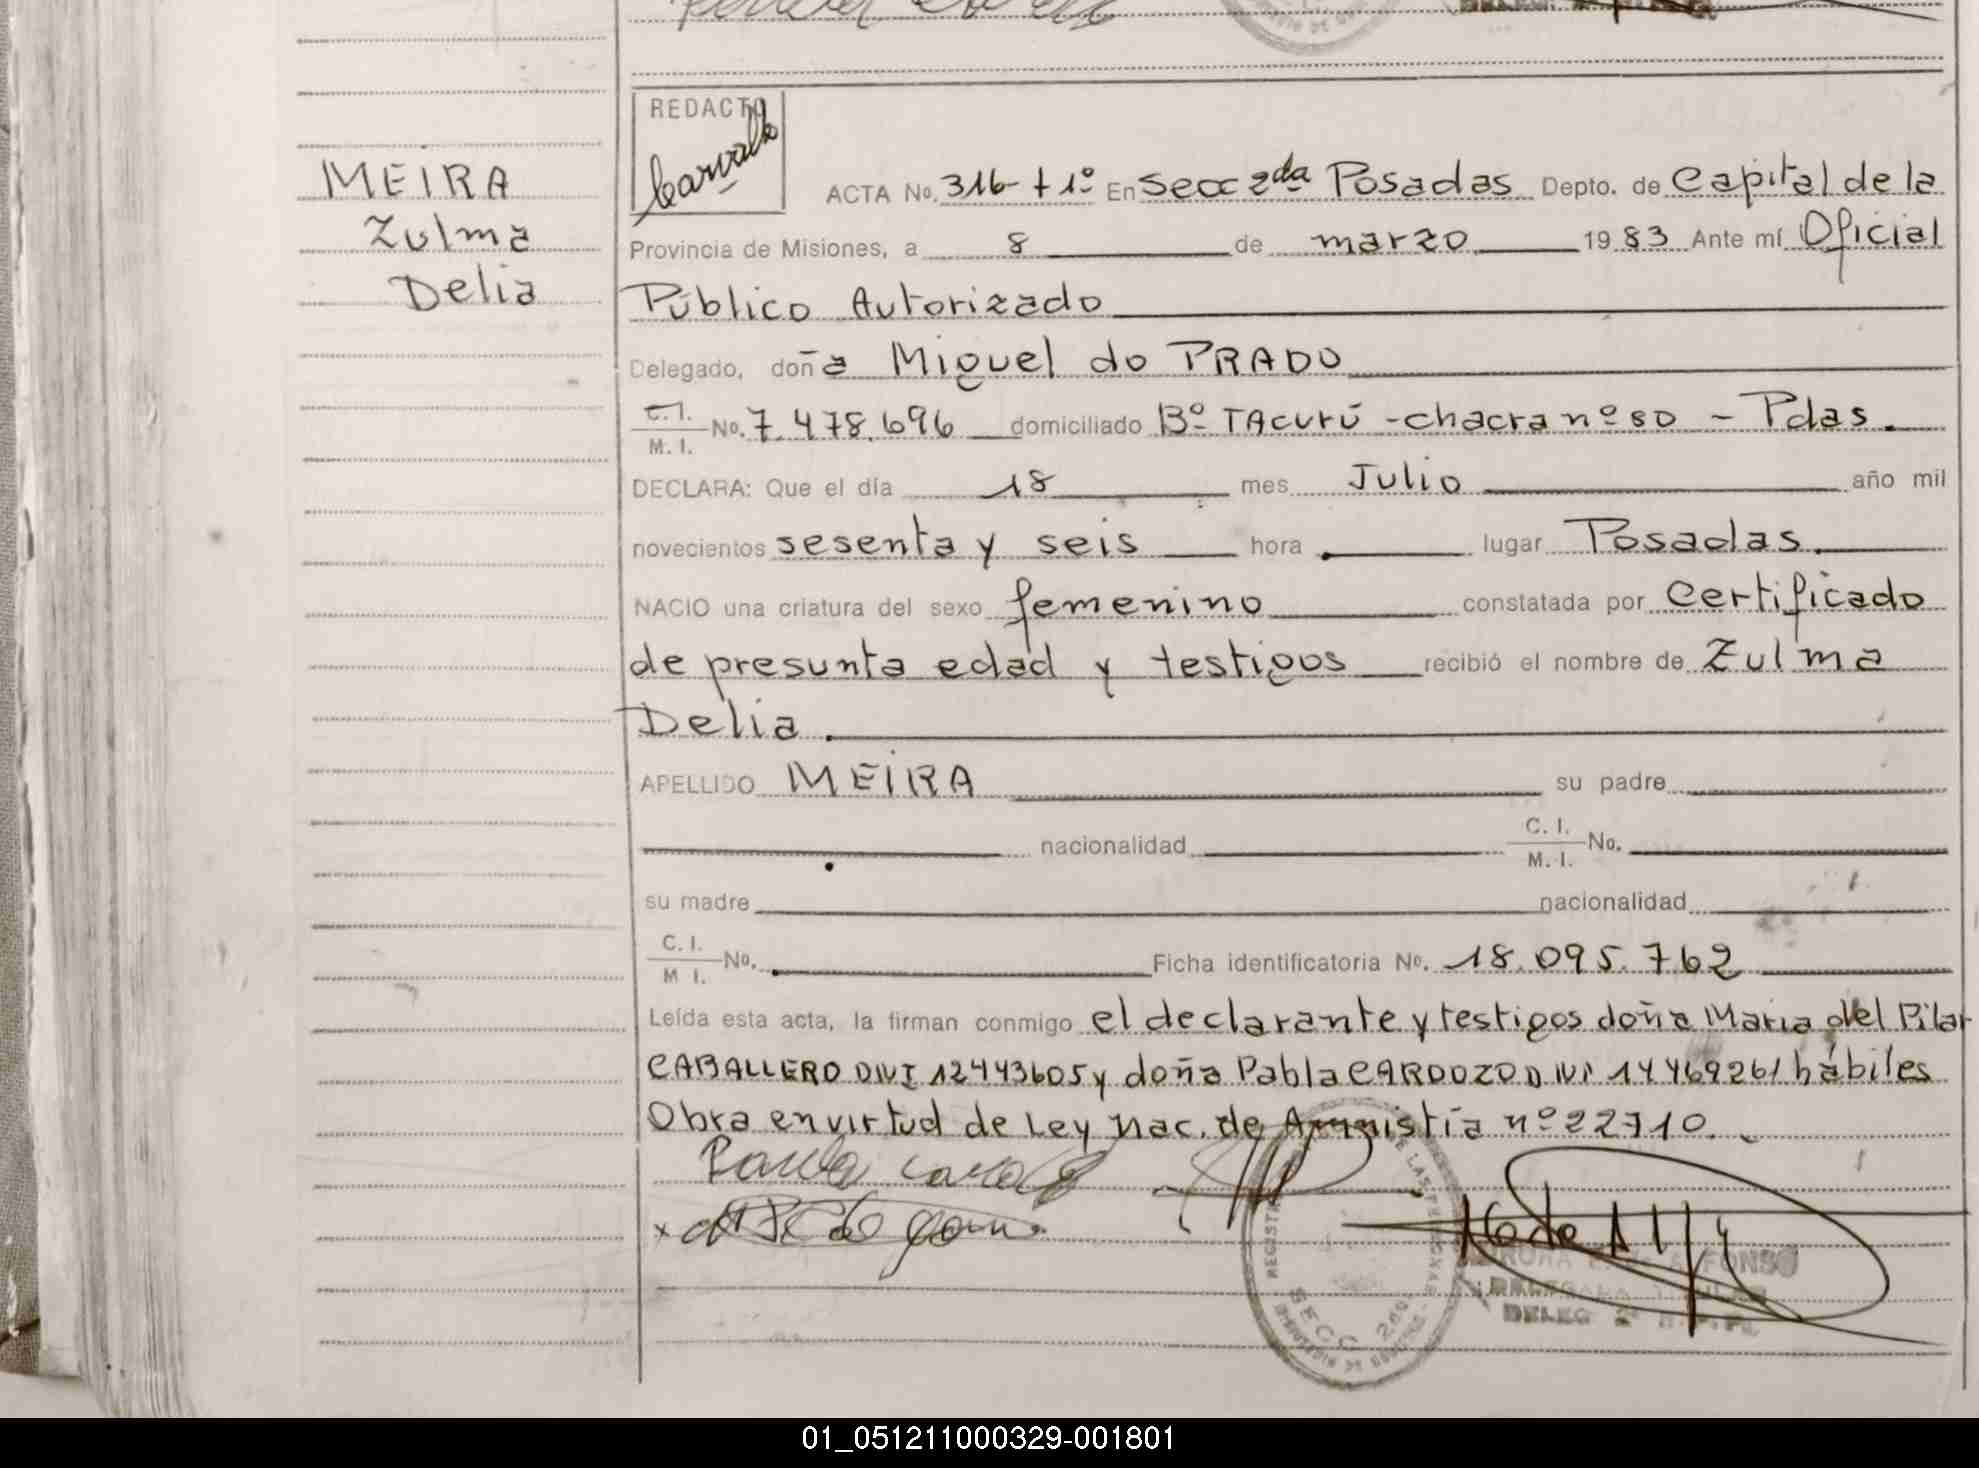 REDACTO
Carvalh
MEIRA
Zulma
Delia
ACTA No. 316- t 1º En Secc 2da Posadas Depto. de Capital de la
Provincia de Misiones, a 8 de marzo 1983 Ante mí Oficial
Público Autorizado
Delegado, doña Miguel do PRADO
C.I. M.I. No. 7.478.696 domiciliado Bº TAcurú - chacra nº 80 - Pdas.
DECLARA: Que el día 18 mes Julio año mil
novecientos sesenta y seis hora lugar Posadas.
NACIO una criatura del sexo femenino constatada por Certificado
de presunta edad y testigos recibió el nombre de Zulma
Delia.
APELLIDO MEIRA su padre
nacionalidad C. I. M. I. No.
su madre nacionalidad
C. I. M I. No. Ficha identificatoria No. 18.095.762
Leída esta acta, la firman conmigo el declarante y testigos doña Maria del Pilar
CABALLERO DNI 12443605 y doña Pabla CARDOZO DNI 14469261 hábiles
Obra en virtud de Ley Nac. de Amnistía nº 22710.
REGISTR DE LAS PERSONAS
SECC 2da
MINISTERIO DE GOBIERNO
FONSO
DELEG 2ª
01_051211000329-001801